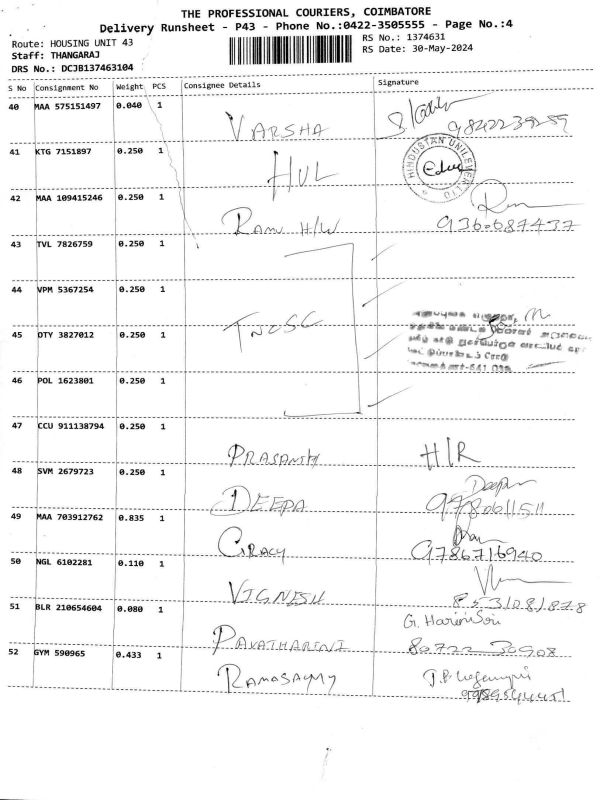 THE PROFESSIONAL COURIERS, COIMBATORE
Delivery Runsheet - P43 - Phone No.:0422-3505555 - Page No.:4
Route: HOUSING UNIT 43
RS No.: 1374631
Staff: THANGARAJ
RS Date: 30-May-2024
DRS No.: DCJB137463104
S No Consignment No Weight PCS Consignee Details Signature
40 MAA 575151497 0.040 1
VARSHA 9842239259
41 KTG 7151897 0.250 1
HUL HINDUSTAN UNILEVER LTD
42 MAA 109415246 0.250 1
RAM H/W
43 TVL 7826759 0.250 1
44 VPM 5367254 0.250 1
TNCSC
45 OTY 3827012 0.250 1
46 POL 1623801 0.250 1
47 CCU 911138794 0.250 1
PRASANTH H/R
48 SVM 2679723 0.250 1
DEEPA Deepa
49 MAA 703912762 0.835 1
GRACY 9786716940
50 NGL 6102281 0.110 1
VIGNESH 8531081878
51 BLR 210654604 0.080 1
G. Harini Sri
PAVATHARINI 80722 30908
52 GYM 590965 0.433 1
RAMASAMY